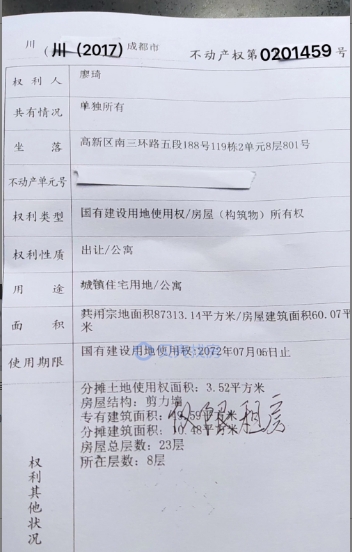 川 川（2017）成都市 不动产权第0201459号
权利人 廖琦
共有情况 单独所有
坐落 高新区南三环路五段188号119栋2单元8层801号
不动产单元号
权利类型 国有建设用地使用权/房屋（构筑物）所有权
权利性质 出让/公寓
用途 城镇住宅用地/公寓
面积 共用宗地面积87313.14平方米/房屋建筑面积60.07平
米
使用期限 国有建设用地使用权:2072年07月06日止
权利其他状况
分摊土地使用权面积: 3.52平方米
房屋结构: 剪力墙
专有建筑面积: 49.59平方米
分摊建筑面积: 10.48平方米
房屋总层数: 23层
所在层数: 8层
仅限租房